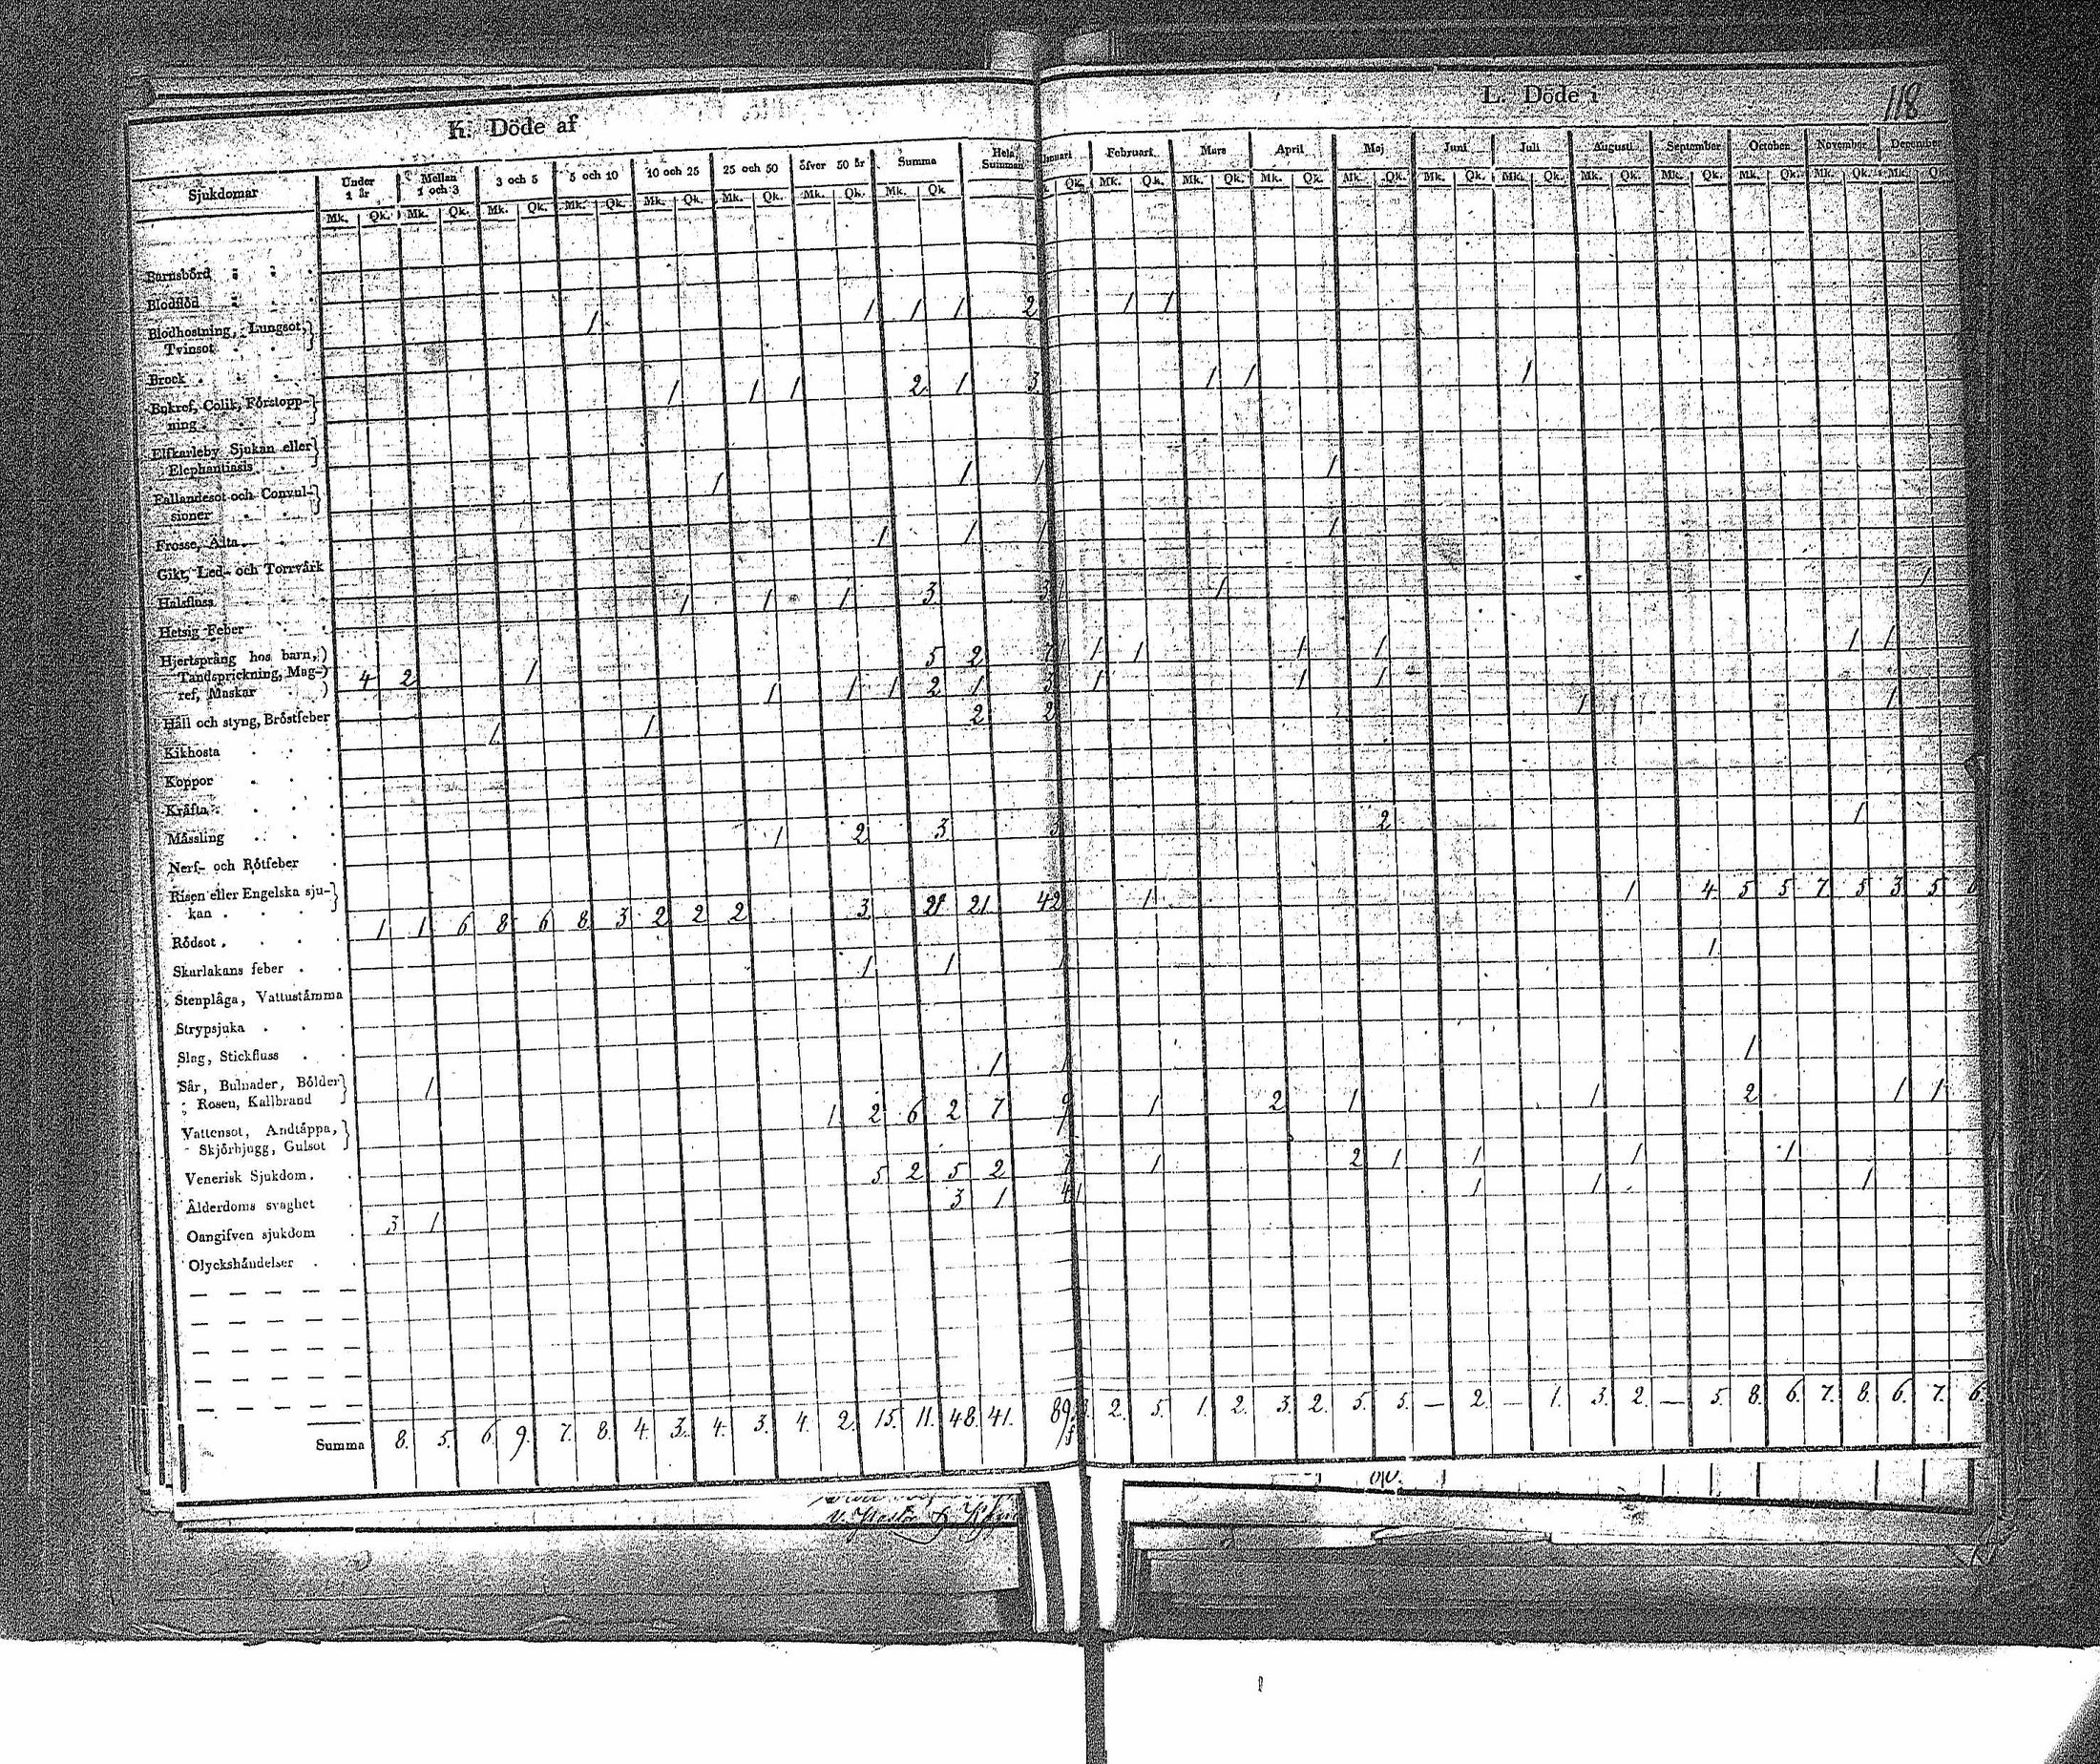 K. Döde af
L. Döde i
118
Sjukdomar Under 1 år Mellan 1 och 3 3 och 5 5 och 10 10 och 25 25 och 50 öfver 50 år Summa Hela Summan Januari Februari Mars April Maj Juni Juli Augusti September October November December
Mk. Qk. Mk. Qk. Mk. Qk. Mk. Qk. Mk. Qk. Mk. Qk. Mk. Qk. Mk. Qk. Qk. Mk. Qk. Mk. Qk. Mk. Qk. Mk. Qk. Mk. Qk. Mk. Qk. Mk. Qk. Mk. Qk. Mk. Qk. Mk. Qk. Mk. Qk.
Barnsbörd
Blodflöd
Blodhostning, Lungsot, 1 1 1 1 2 1 1
Tvinsot
Brock
Bukref, Colik, Förstopp- 1 1 1 2 1 3 1 1 1
ning
Elfkarleby Sjukan eller
Elephantiasis
Fallandesot och Convul- 1 1 1 1
sioner
Frosse, Älta 1 1 1 1
Gikt, Led- och Torrvärk
Halsfluss 1 1 1 3 3 1 1 1
Hetsig Feber
Hjertsprång hos barn,
Tandsprickning, Mag- 4 2 1 5 2 7 1 1 1 1 1 1 1
ref, Maskar
Håll och styng, Bröstfeber 1 1 1 2 1 3 1 1 1
Kikhosta 1 1 2 2 1 1
Koppor
Kräfta
Mässling 1 2 3 3 2 1
Nerf- och Rötfeber
Risen eller Engelska sju-
kan
Rödsot 1 1 6 8 6 8 3 2 2 2 3 21 21 42 1 1 4 5 5 7 5 3 5
Skarlakans feber 1 1 1 1
Stenplåga, Vattustämma
Strypsjuka
Slag, Stickfluss
Sår, Bulnader, Bölder 1 1 1 1
Rosen, Kallbrand
Vattensot, Andtäppa, 1 2 6 2 7 9 1 2 1 1 2 1 1
Skjörbjugg, Gulsot
Venerisk Sjukdom
Ålderdoms svaghet 5 2 5 2 7 1 2 1 1 1 1
Oangifven sjukdom 3 1 3 1 4 1 1 1 1
Olyckshändelser
Summa 8. 5. 6. 9. 7. 8. 4. 3. 4. 3. 4. 2. 15. 11. 48. 41. 89. 2. 5. 1. 2. 3. 2. 5. 5. — 2. — 1. 3. 2. — 5. 8. 6. 7. 8. 6. 7. 6.